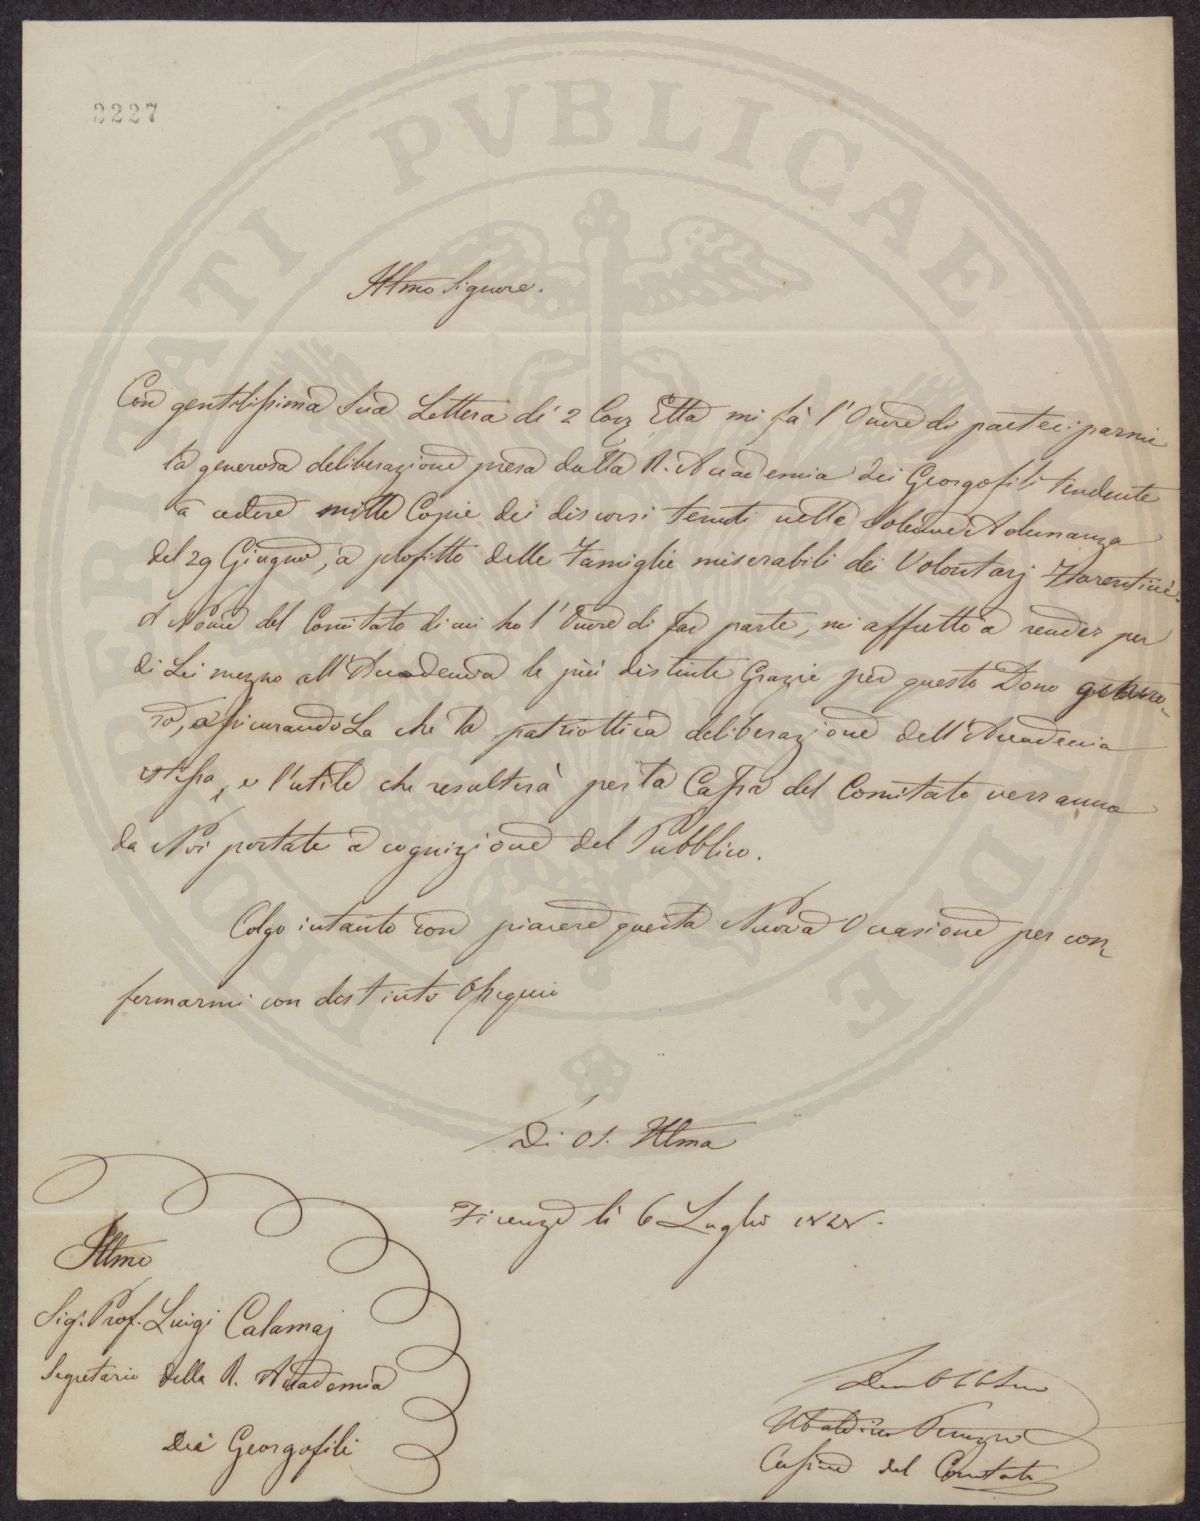 2227
PROSPERITATI PVBLICAE AVGENDAE
Illmo Signore.
Con gentilissima Sua Lettera de' 2 Corr Ella mi fà l'Onore di parteciparmi
la generosa deliberazione presa dalla R. Accademia dei Georgofili tendente
a cedere mille Copie dei discorsi tenuti nella Solenne Adunanza
del 29 Giugno, a profitto delle Famiglie miserabili dei Volontarj Fiorentini.
A Nome del Comitato di cui ho l'Onore di far parte, mi affretto a render per
di Lei mezzo all'Accademia le più distinte Grazie per questo Dono genero-
so, assicurandoLa che la patriottica deliberazione dell'Accademia
stessa, e l'utile che resulterà per la Cassa del Comitato verranno
da Noi portate a cognizione del Pubblico.
Colgo intanto con piacere questa Nuova Occasione per con-
fermarmi con distinto Ossequio
Di VS. Illma
Firenze li 6 Luglio 1848.
Illmo
Sig. Prof. Luigi Calamaj
Segretario della R. Accademia
Dei Georgofili
Ubaldino Peruzzi
Cassiere del Comitato